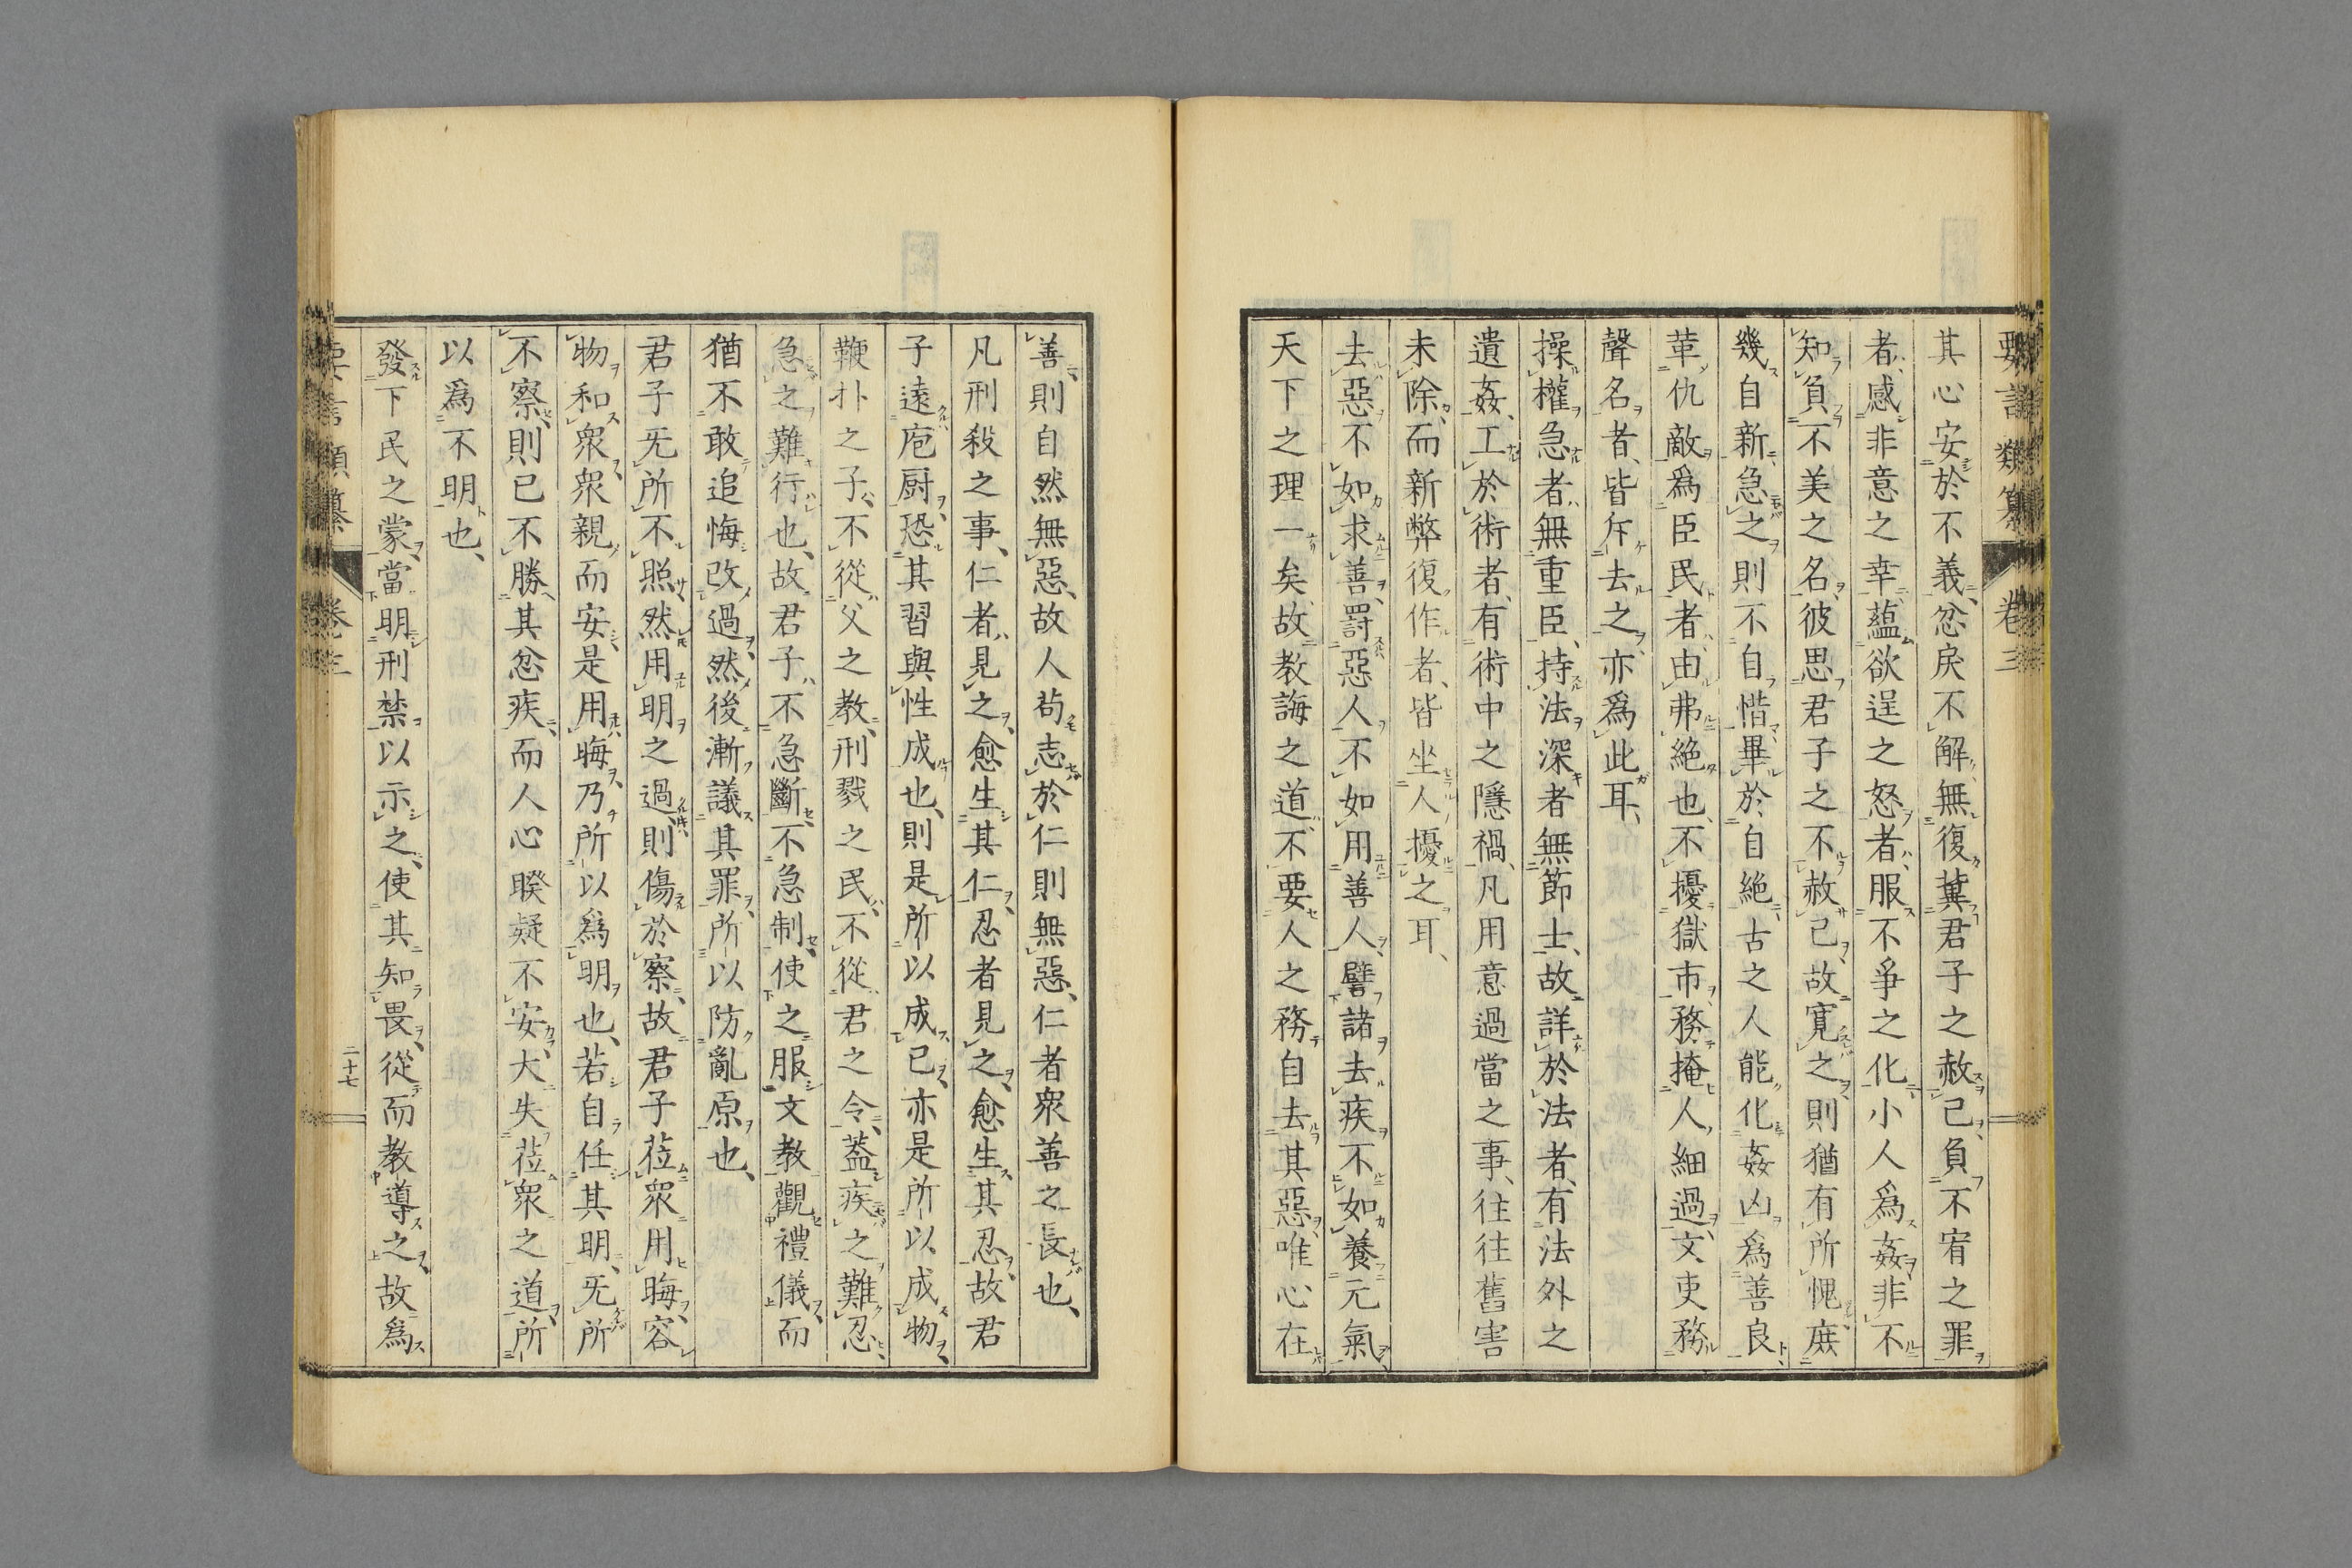 其心安於不義、忿戾不解、無復冀君子之赦己、負不宥之罪
者、感非意之幸、蘊欲逞之怒者、服不爭之化、小人爲姦、非不
知負不美之名、彼思君子之不赦己、故寬之、則猶有所愧、庶
幾自新、急之則不自惜、畢於自絶、古之人能化姦凶爲善良、
革仇敵爲臣民者、由弗絶也、不擾獄市、務掩人細過、文吏務
聲名者、皆斥去之、亦爲此耳、
操權急者、無重臣、持法深者無節士、故詳於法者、有法外之
遺姦、工於術者、有術中之隱禍、凡用意過當之事、往往舊害
未除、而新弊復作者、皆坐人擾之耳、
去惡不如求善、罰惡人不如用善人、譬諸去疾不如養元氣、
天下之理一矣、故教誨之道、不要人之務自去其惡、唯心在
善、則自然無惡、故人苟志於仁則無惡、仁者衆善之長也、
凡刑殺之事、仁者見之、愈生其仁、忍者見之、愈生其忍、故君
子遠庖厨、恐其習與性成也、則是所以成己、亦是所以成物、
鞭扑之子、不從父之教、刑戮之民、不從君之令、蓋疾之難忍、
急之難行也、故君子不急斷、不急制、使之服文教觀禮儀、而
猶不敢追悔改過、然後漸議其罪、所以防亂原也、
君子旡所不照、然用明之過、則傷於察、故君子莅衆用晦、容
物和衆、衆親而安、是用晦乃所以爲明也、若自任其明、旡所
不察、則已不勝其忿疾、而人心睽疑不安、大失莅衆之道、所
以爲不明也、
發下民之蒙、當明刑禁以示之、使其知畏、從而教導之、故爲
二十七